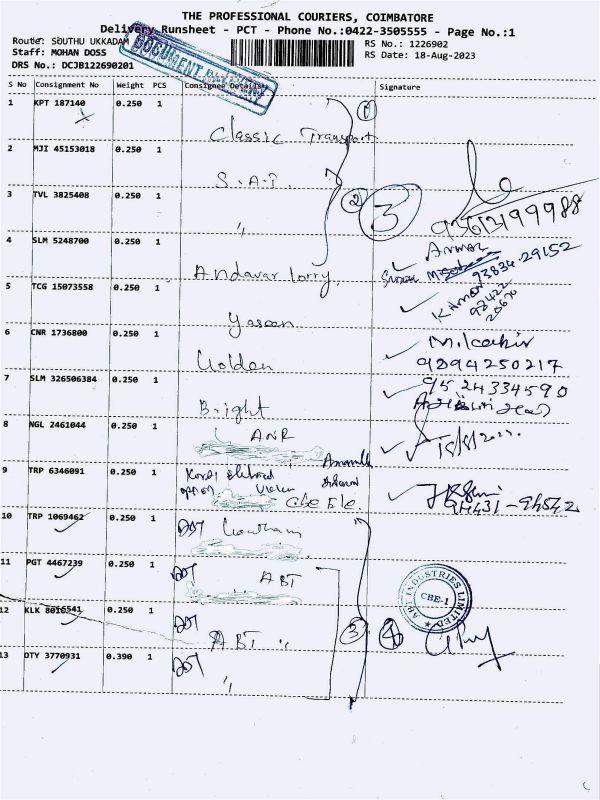 THE PROFESSIONAL COURIERS, COIMBATORE
Delivery Runsheet - PCT - Phone No.:0422-3505555 - Page No.:1
Route: SOUTHU UKKADAM
RS No.: 1226902
Staff: MOHAN DOSS
RS Date: 18-Aug-2023
DRS No.: DCJB122690201
DOCUMENT DELIVERY
S No Consignment No Weight PCS Consignee Details Signature
1 KPT 187140 0.250 1 Classic Transport
1
2 MJI 45153018 0.250 1 S.A.T.
3 TVL 3825408 0.250 1 "
2
3
93613199988
4 SLM 5248700 0.250 1 Andavar lorry,
93834-29152
5 TCG 15073558 0.250 1 Yaseen
6 CNR 1736800 0.250 1 Golden
9894250217
7 SLM 326506384 0.250 1 Bright
9524334590
8 NGL 2461044 0.250 1 ANR
9 TRP 6346091 0.250 1
94431-94542
10 TRP 1069462 0.250 1 Gowtham
11 PGT 4467239 0.250 1 ABT
ABT INDUSTRIES LIMITED
CBE-1
12 KLK 8016541 0.250 1 ABT "
3
4
13 DTY 3770931 0.390 1 "